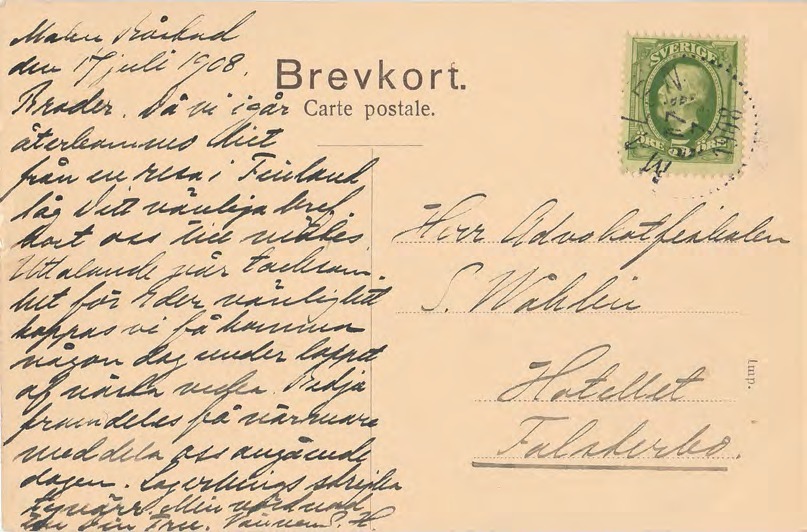 Malen Båstad
den 17 juli 1908.
Broder. Då vi igår
återkommo hit
från en resa i Finland
låg Ditt vänliga bref-
kort oss till mötes.
Uttalande vår tacksam-
het för Eder vänlighet
hoppas vi få komma
någon dag under loppet
af nästa vecka. Bedja
framdeles få närmare
meddela oss angående
dagen. Lagerbrings
tyvärr. Min vördnad
Din Fru. Vännen S. H.
Brevkort.
Carte postale.
SVERIGE
5
ÖRE ÖRE
MALEN
17
1908
Herr Advokatfiskalen
S. Wåhlin
Hotellet
Falsterbo.
Imp.